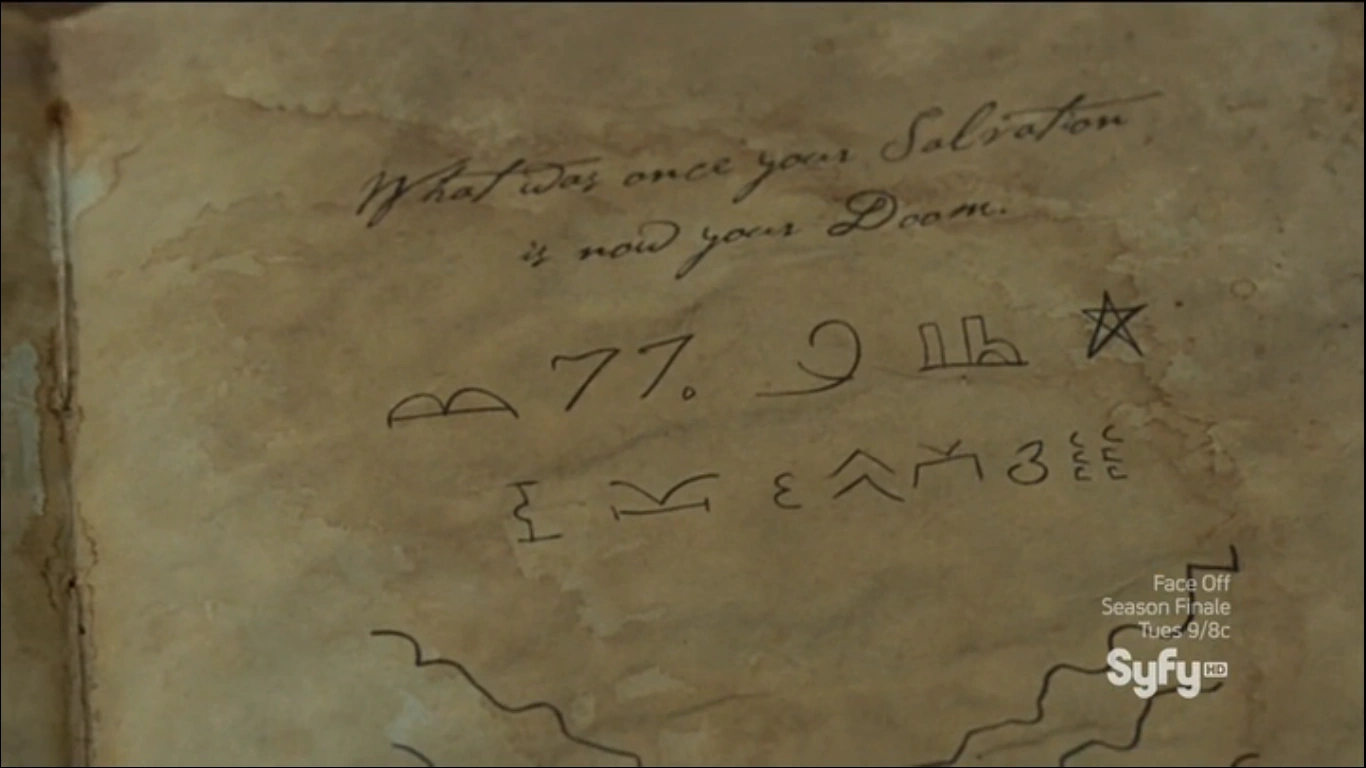 What was once your Salvation
is now your Doom.
77.
Face Off
Season Finale
Tues 9/8c
Syfy HD